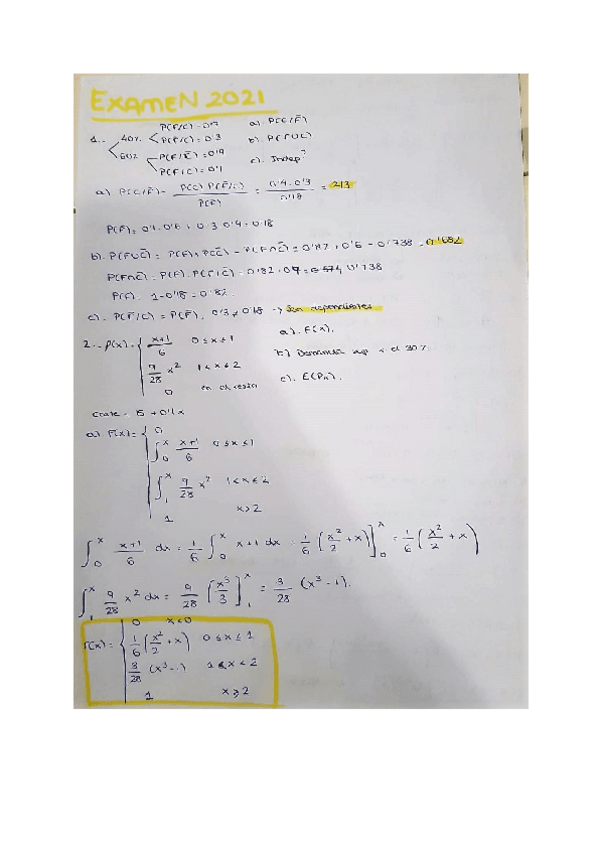 EXAMEN 2021
P(F/C) = 0'7 a). P(C/F̄)
1.- 40% P(F̄/C) = 0'3 b). P(F∪C̄)
60% P(F/C̄) = 0'9 c). Indep?
P(F̄/C̄) = 0'1
a) P(C/F̄) = P(C) P(F̄/C) / P(F̄) = 0'4 · 0'3 / 0'18 = 2/3
P(F̄) = 0'1 · 0'6 + 0'3 · 0'4 = 0'18
b). P(F∪C̄) = P(F) + P(C̄) - P(F∩C̄) = 0'82 + 0'6 - 0'738 = 0'682
P(F∩C̄) = P(F) · P(F/C̄) = 0'82 · 0'9 = 0'738
P(F) = 1 - 0'18 = 0'82
c). P(F̄/C) = P(F̄). 0'3 ≠ 0'18 → Son dependientes
2.- P(x) = { x+1/6 0 ≤ x ≤ 1 a). F(x).
9/28 x² 1 < x ≤ 2 b) Demanda 30%
0 c). E(Pn).
Coste = 15 + 0'1x
a) F(x) = { 0
∫₀ˣ x+1/6 0 ≤ x ≤ 1
∫₁ˣ 9/28 x² 1 < x ≤ 2
1 x > 2
∫₀ˣ x+1/6 dx = 1/6 ∫₀ˣ x+1 dx = 1/6 [x²/2 + x]₀ˣ = 1/6 (x²/2 + x)
∫₁ˣ 9/28 x² dx = 9/28 [x³/3]₁ˣ = 3/28 (x³ - 1).
0 x < 0
F(x) = { 1/6 (x²/2 + x) 0 ≤ x ≤ 1
3/28 (x³ - 1) 1 < x < 2
1 x ≥ 2